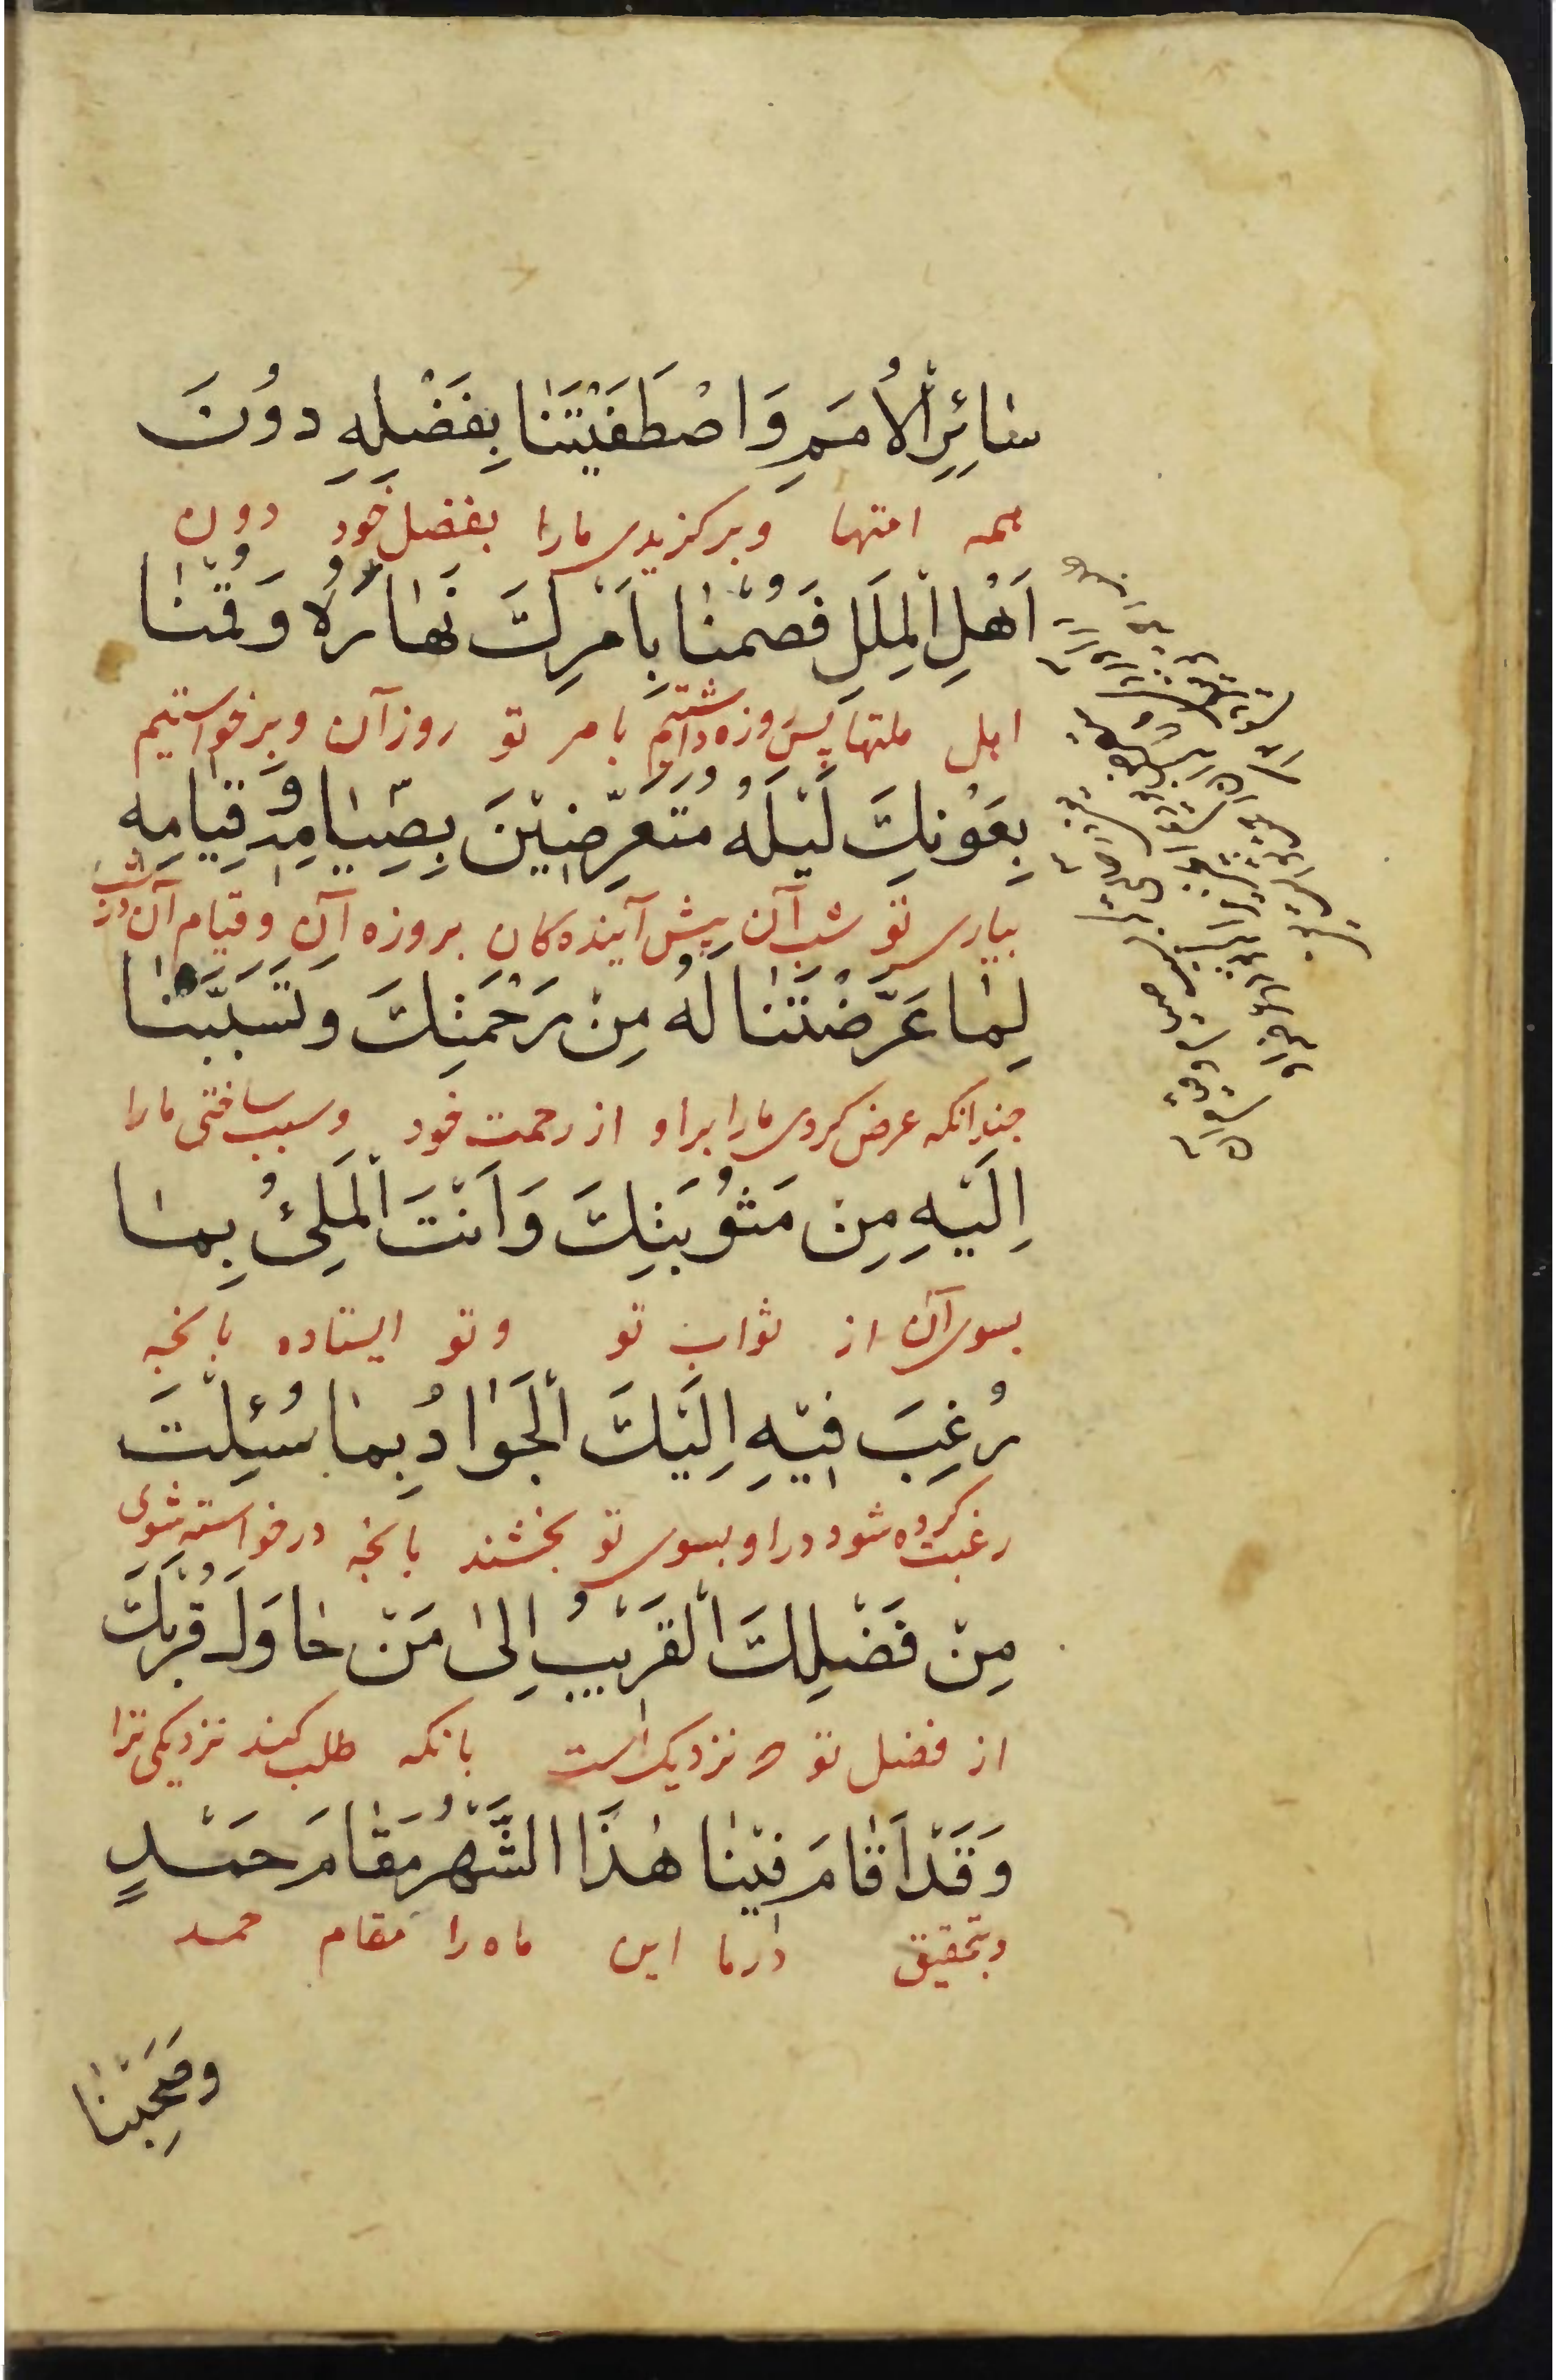 سٰائِرِ الْاُمَمِ وَاصْطَفَيْتَنٰا بِفَضْلِهِ دوُنَ
همه امتها وبرکزیدی مارا بفضل خود دون
اَهْلِ الْمِلَلِ فَصُمْنٰا بِاَمْرِكَ نَهٰارَهُ وَقُمْنٰا
اهل ملتها پس روزه داشتیم بامر تو روز آن وبرخواستیم
بِعَوْنِكَ لَيْلَهُ مُتَعَرِّضيٖنَ بِصِيٰامِهِ وَقِيٰامِهِ
بیاری تو شب آن پیش آینده کان بروزه آن وقیام آن در شب
لِمٰا عَرَّضْتَنٰا لَهُ مِنْ رَحْمَتِكَ وَتَسَبَّبْنٰا
چندانکه عرض کردی مارا براو از رحمت خود وسبب ساختی مارا
اِلَيْهِ مِنْ مَثوُبَتِكَ وَاَنْتَ الْمَلِئُ بِمٰا
بسوی آن از ثواب تو وتو ایستاده بانچه
رُغِبَ فيٖهِ اِلَيْكَ الْجَوٰادُ بِمٰا سُئِلْتَ
رغبت کرده شود دراو بسوی تو بخشند بانچه درخواسته شوی
مِنْ فَضْلِكَ الْقَريٖبُ اِلىٰ مَنْ حٰاوَلَ قُرْبَكَ
از فضل تو نزدیک است بانکه طلب کند نزدیکی ترا
وَقَدْ اَقٰامَ فيٖنٰا هٰذَا الشَّهْرُ مَقٰامَ حَمْدٍ
وبتحقیق درما این ماه را مقام حمد
وَصَحِبَنٰا